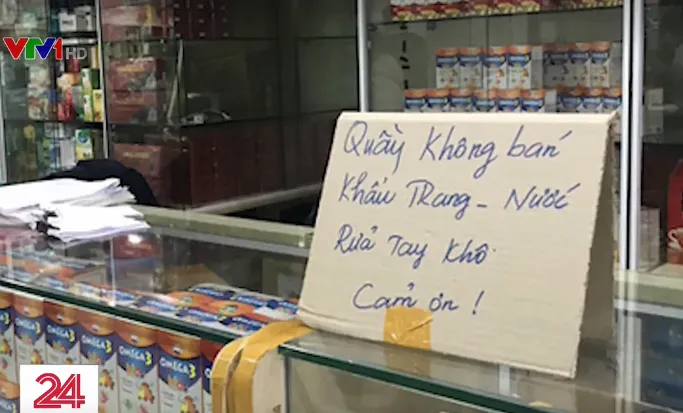 VTV1 HD
Quầy không bán
Khẩu Trang - Nước
Rửa Tay Khô
Cảm ơn !
OMEGA 3
OMEGA 3
OMEGA 3
OMEGA 3
24